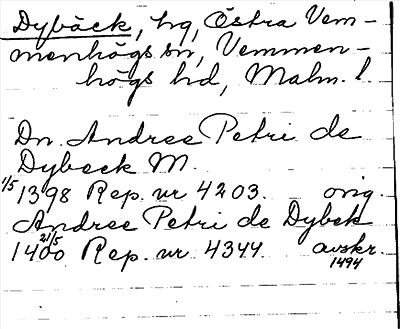 Dybäck, hg, Östra Vem-
menhögs sn, Vemmen-
högs hd, Malm. l.
Dn. Andree Petri de
Dybeck M.
1/5 1398 Rep. nr 4203. orig.
Andree Petri de Dybek
21/5 1400 Rep. nr 4344. avskr.
1494